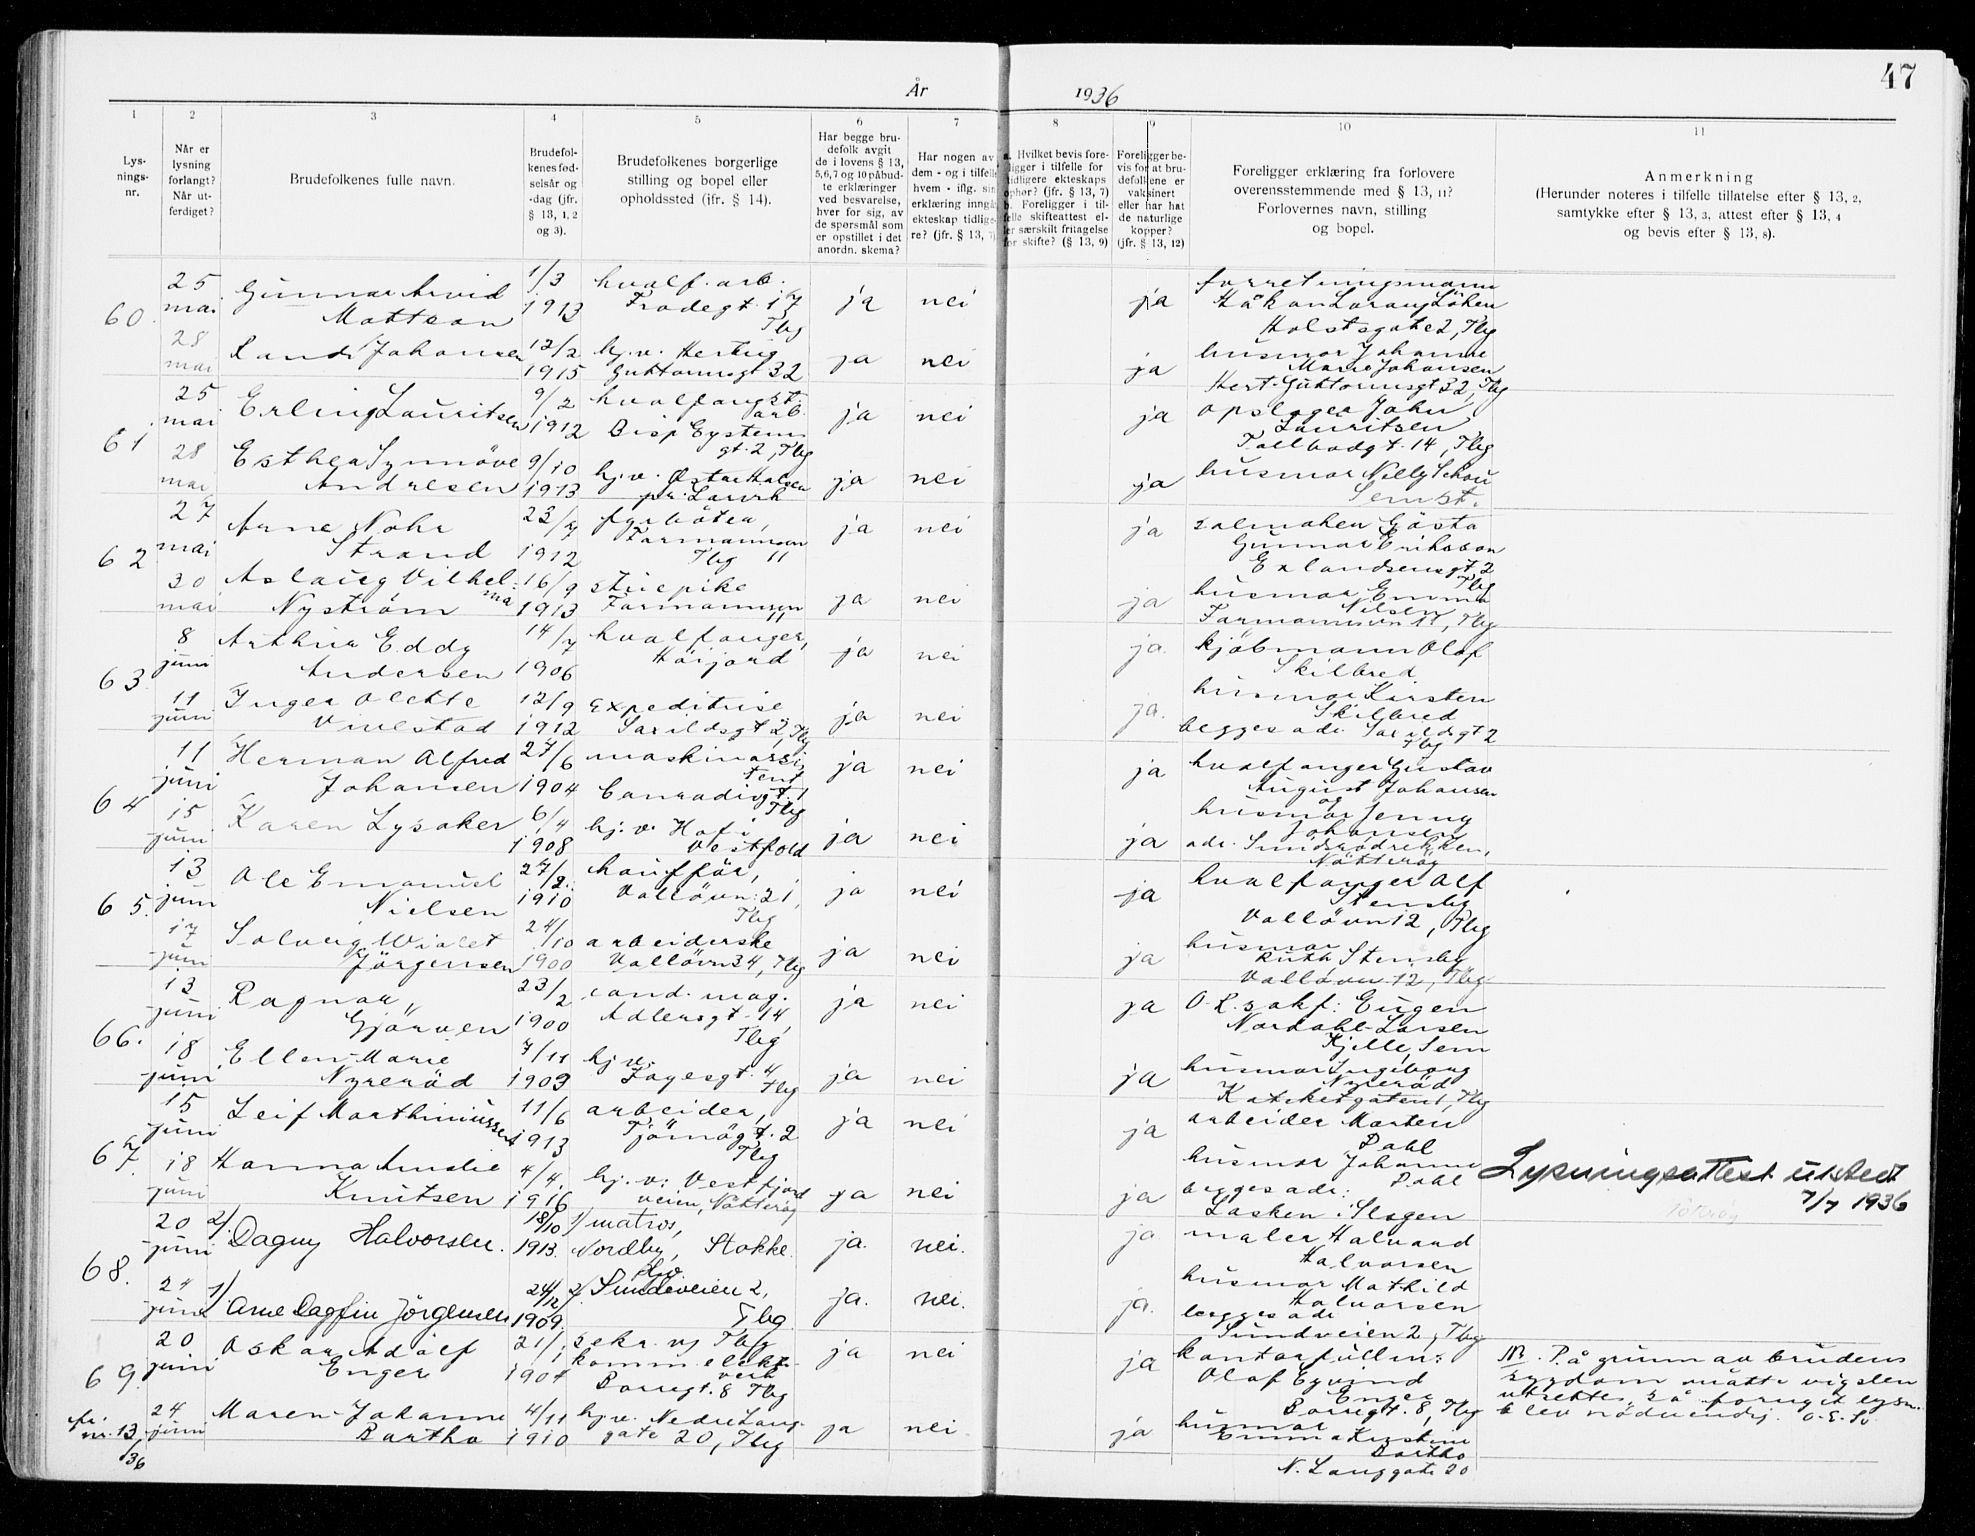 47
År 1936
1 2 3 4 5 6 7 8 9 10 11
Lys-
nings-
nr.
Når er
lysning
forlangt?
Når ut-
ferdiget?
Brudefolkenes fulle navn.
Brudefol-
kenes fød-
selsår og
-dag (jfr.
§ 13, 1, 2
og 3).
Brudefolkenes borgerlige
stilling og bopel eller
opholdssted (jfr. § 14).
Har begge bru-
defolk avgit
de i lovens § 13,
5, 6, 7 og 10 påbud-
te erklæringer
ved besvarelse,
hver for sig, av
de spørsmål som
er opstillet i det
anordn. skema?
Har nogen av
dem - og i tilfelle
hvem - iflg. sin
erklæring inngå
ekteskap tidlige-
re? (jfr. § 13, 7)
a. Hvilket bevis fore-
ligger i tilfelle for
tidligere ekteskaps
ophør? (jfr. § 13, 7)
b. Foreligger i til-
felle skifteattest el-
ler særskilt fritagelse
for skifte? (§ 13, 9)
Foreligger be-
vis for at bru-
defolkene er
vaksinert
eller har hat
de naturlige
kopper?
(jfr. § 13, 12)
Foreligger erklæring fra forlovere
overensstemmende med § 13, 11?
Forlovernes navn, stilling
og bopel.
Anmerkning
(Herunder noteres i tilfelle tillatelse efter § 13, 2,
samtykke efter § 13, 3, attest efter § 13, 4
og bevis efter § 13, 8).
60.
25 mai Gunnar Arvid Mattson 1/3 1913 hvalf. arb. Frodegt. 17 Tbg ja nei ja forretningsmann
Håkon Lorang Löken
Holstsgate 2, Tbg
28 mai Randi Johansen 12/2 1915 hj. v. Hertug Guttormsgt 32 ja nei ja husmor Johanne
Marie Johansen
Hert. Guttormsgt 32, Tbg
61
25 mai Erling Lauritsen 9/2 1912 hvalfangst arb. Bisp Eysteins gt. 2, Tbg ja nei ja opslager John
Lauritsen
Tollbodgt. 14, Tbg
28 mai Esther Synnöve Andresen 9/10 1913 hj. v. Østre Halsen pr. Larvik ja nei ja husmor Nelly Schou
Sem st.
62
27 mai Arne Nohr Strand 23/7 1912 fyrböter, Farmannsvn 11 Tbg ja nei ja salmaker Gösta
Gunnar Eriksson
Erlandsensgt. 2
Tbg
30 mai Aslaug Vilhelma Nyström 16/9 1913 stuepike Farmannsvn 11 ja nei ja husmor Emma
Nilsen
Farmannsvn 11, Tbg
63
8 juni Arthur Eddy Andersen 14/7 1906 hvalfanger, Höijord ja nei ja. kjöbmann Olaf
Skilbred
11 juni Inger Olette Vivestad 12/9 1912 Expeditrise Sarildsgt 2, Tbg ja nei ja. husmor Kirsten
Skilbred
begges adr. Sarildsgt 2
Tbg
64
11 juni Herman Alfred Johansen 27/6 1904 maskinassi- tent Conradisgt. 1 Tbg ja nei ja hvalfanger Gustav
August Johansen
og
15 juni Karen Lysaker 6/4 1908 hj. v. Hof i Vestfold ja nei ja husmor Jenny
Johansen
adr. Smidsrödrekken,
Nötteröy
65.
13 juni Ole Emanuel Nielsen 27/2 1910 chaufför, Vallövn. 21, Tbg ja nei ja hvalfanger Alf
Stensby
Vallövn 12, Tbg
17 juni Solveig Wiolet Jörgensen 24/10 1900 arbeiderske Vallövn 34, Tbg ja nei ja husmor
Ruth Stensby
Vallövn. 12, Tbg
66.
13 juni Ragnar, Gjörven 23/2 1900 cand. mag. Adlersgt. 14 Tbg ja nei ja O. R. sakf. Eugen
Nordahl-Larsen
Kjelle, Sem
18 juni Ellen-Marie Nyreröd 7/11 1903 hj. v. Fayesgt. 4 Tbg ja nei ja husmor Ingeborg
Nyreröd
Tbg
67
15 juni Leif Marthiniussen 11/6 1913 arbeider, Tjömögt. 2 Tbg ja nei ja arbeider Morten
Dahl
18 juni Hanna Amalie Knutsen 4/4. 1916 hj. v. Vestfjord veien, Nötteröy ja nei ja husmor Johanne
Dahl
begges adr.
Lasken i Slagen
Lysningsattest utstedt
7/7 1936
68.
20 juni 2/. Dagny Halvorsen. 18/10 1913. 1/ matros, Nordby, Stokke. ja. nei. ja maler Halvard
Halvorsen
24 juni 1/ Arne Dagfin Jörgensen 24/12 1909. 2/. Sundeveien 2, Tbg. ja. nei. ja. husmor Mathild
Halvorsen
begges adr
Sundveien 2, Tbg
69.
20 juni Oskar Adolf Enger 21/1 1904 sekr. v/ Tbg komm. elekt. verk Borregt. 8 Tbg ja nei ja kontorfullm.
Olaf Eyvind
Enger
Borregt. 8, Tbg
NB. På grunn av brudens
sygdom måtte vigslen
utsettes, så fornyet lysn.
blev nödvendig.
fr. nr. 13/36
24 juni Maren-Johanne Bartho 4/11 1910 hj. v. Nedre Lang- gate 20, Tbg ja nei ja husmor
Emma Kirstine
Bartho
N. Langgate 20